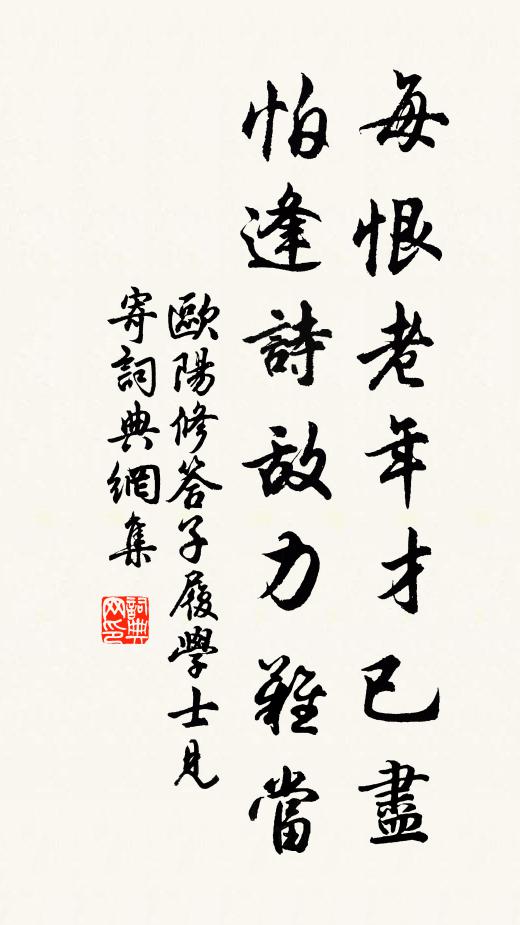 每恨老年才已盡
怕逢詩敵力難當
歐陽修答子履學士見
寄詞典網集
詞典
网印